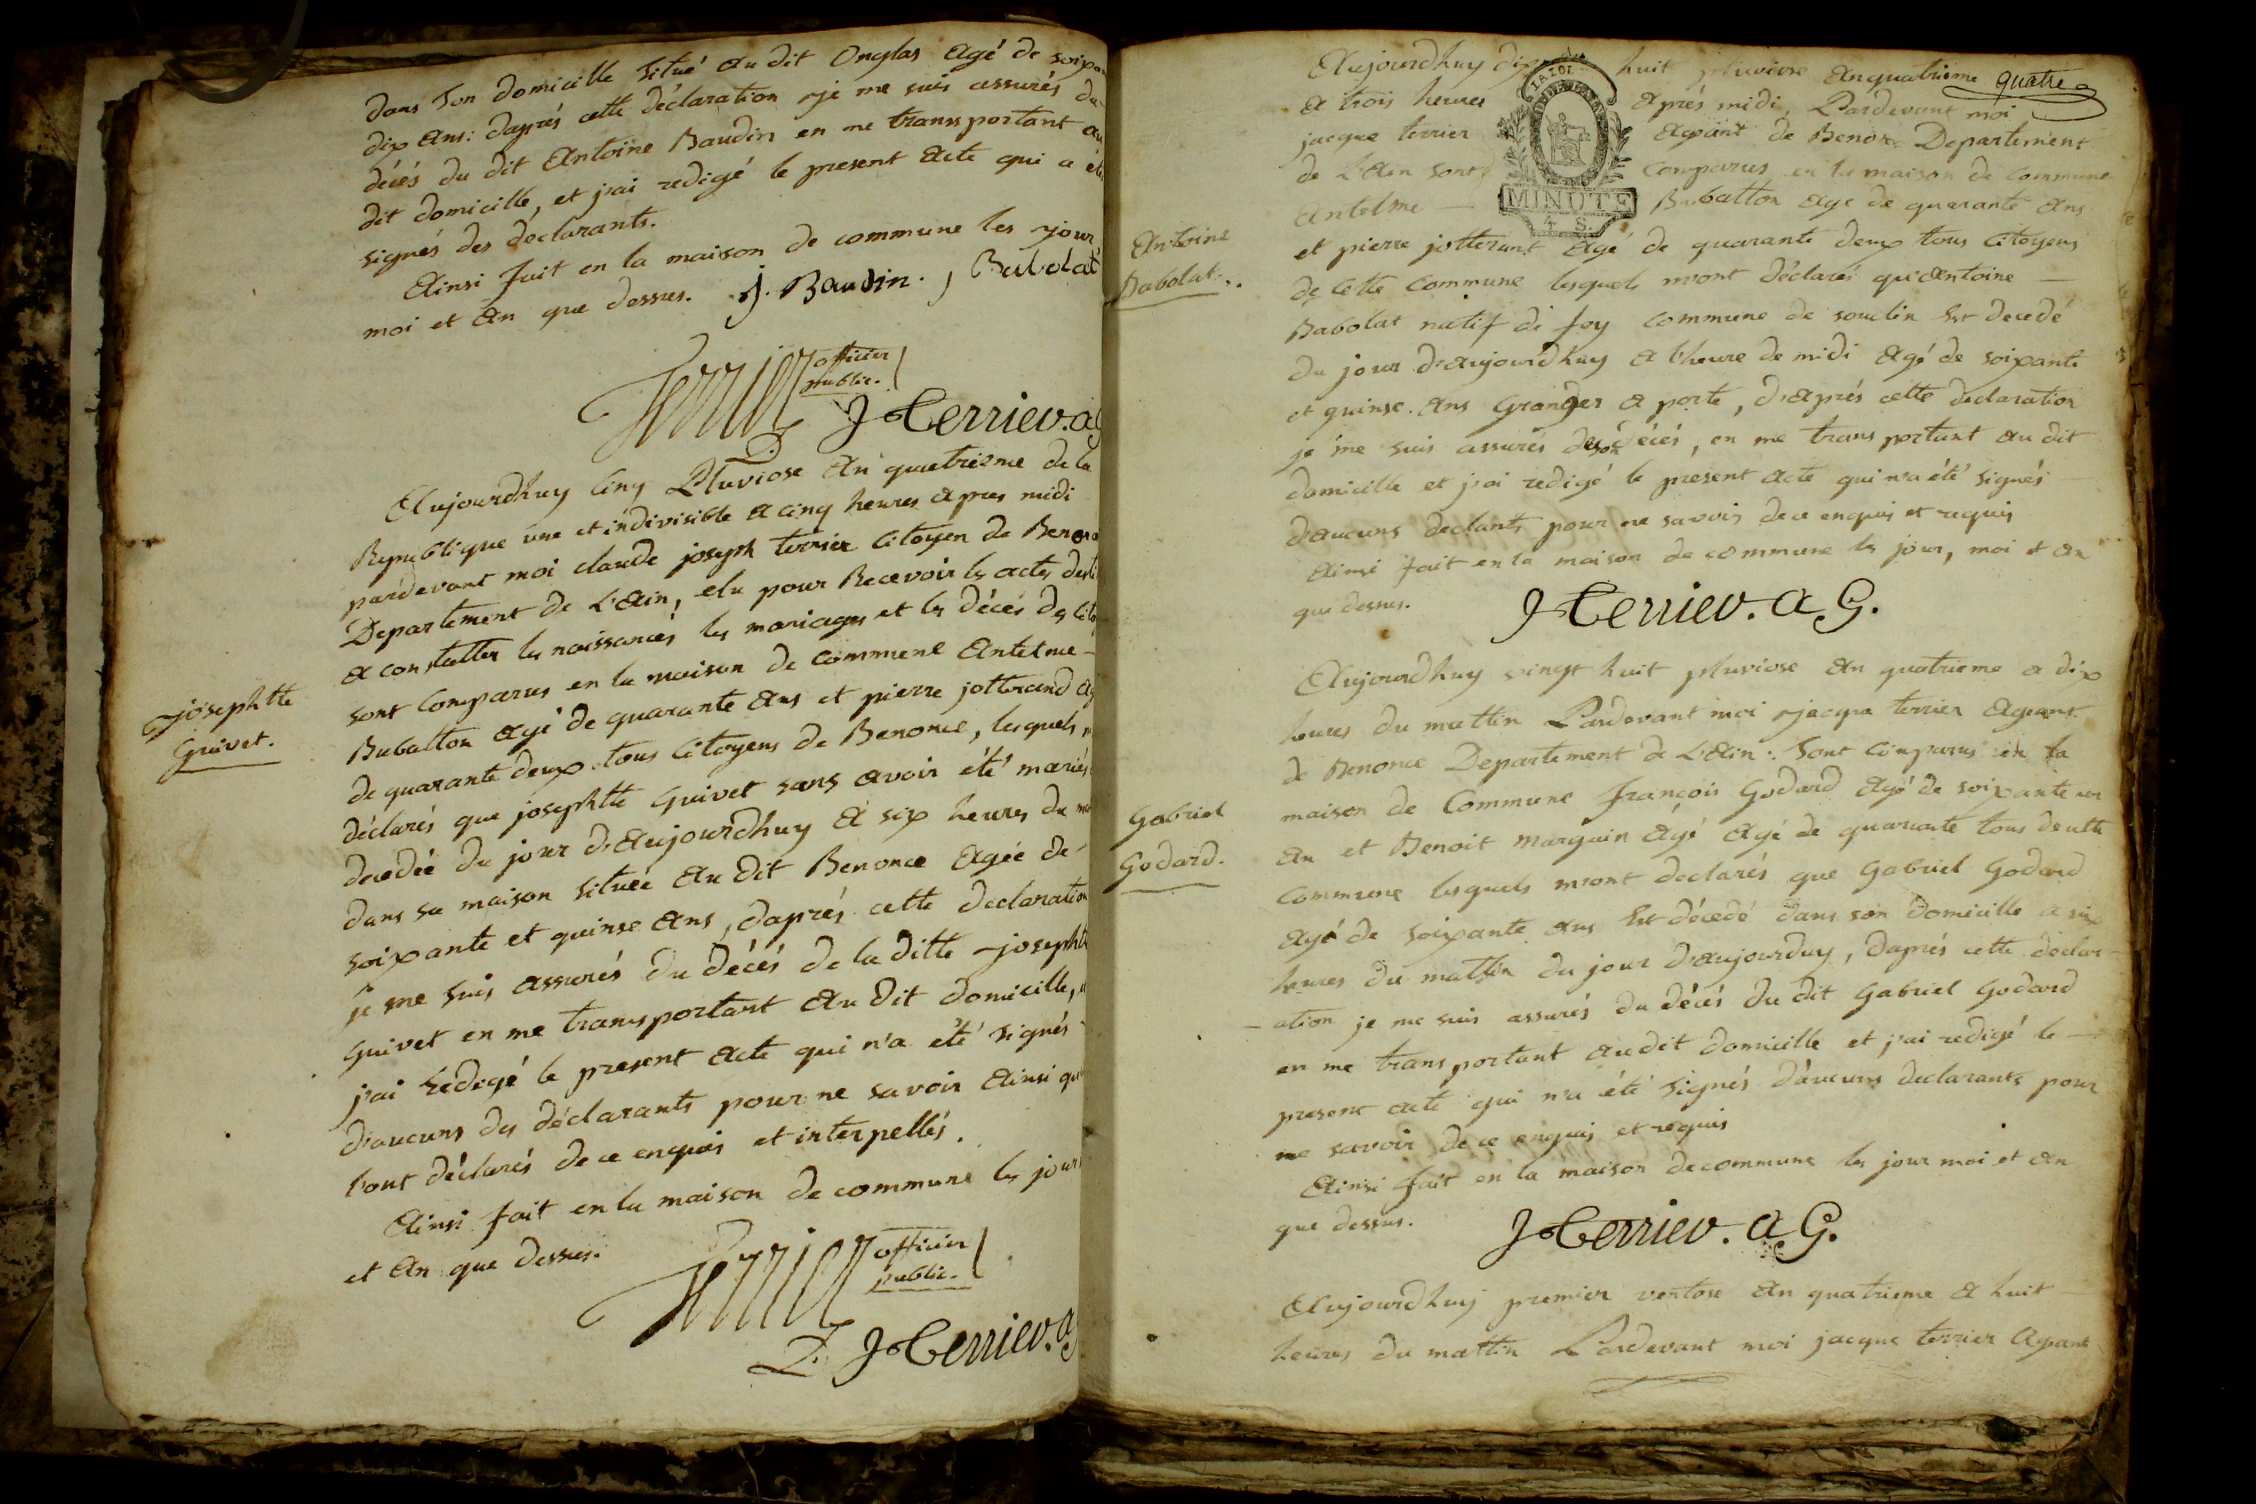 dans son domicille situé au dit Onglas agé de soixa
dix ans: d'aprés cette déclaration je me suis assurés du
décés du dit Antoine Baudin en me transportant au
dit domicille, et j'ai redigé le present acte qui a été
signés des declarants.
Ainsi fait en la maison de commune les jour
moi et an que dessus. j. Baudin. , Babolat
Terrier officier
public.
J Terrier. a
Josephtte
Guivet.
Aujourdhuy cinq Pluviose an quatrieme de la
Republique une et indivisible a cinq heures apres midi
pardevant moi claude joseph terrier citoyen de Benonce
Departement de L'Ain, elu pour Recevoir les actes desti
a constatter les naissances les mariages et les décés des cito
sont Comparus en la maison de commune Antelme -
Bubatton agé de quarante ans et pierre jotterand ag
de quarante deux tous citoyens de Benonce, lesquels m
déclarés que josephtte Guivet sans avoir été mariés
decedée du jour d'aujourdhuy a six heures du ma
dans sa maison située au dit Benonce agée de
soixante et quinse ans, daprés cette declaration
je me suis assurés du décés de la ditte josepht
Guivet en me transportant au dit domicille,
j'ai redigé le present acte qui n'a été signés
d'aucuns des déclarants pour ne savoir ainsi qu
l'ont déclarés de ce enquis et interpellés.
Ainsi fait en la maison de commune les jour
et an que dessus.
Terrier officier
public.
J Terrier. a
quatre
Aujourdhuy dix huit pluviose an quatrieme
a trois heures aprés midi, Pardevant moi
jacque terrier agant de Benonce Departement
de L'Ain sont comparus en la maison de commune
Antelme — Bubatton age de quarante ans
LA LOI
MINUTE
4 S.
Antoine
Babolat.
et pierre jotterant agé de quarante deux tous citoyens
de cette commune lesquels m'ont déclarés qu'Antoine —
Babolat natif de foy commune de souclin est decedé
du jour d'aujourdhuy a l'heure de midi agé de soixante
et quinse ans Granger a porte, d'aprés cette declaration
je me suis assurés de son décés, en me transportant au dit
domicille et j'ai redigé le present acte qui n'a été signés
d'aucuns declants pour ne savoir de ce enquis et requis
Ainsi fait en la maison de commune les jour, moi et an
que dessus. J Terrier. a G.
Gabriel
Godard.
Aujourdhuy vingt huit pluviose an quatrieme a dix
heures du mattin Pardevant moi jacque terrier Agant
de Benonce Departement de L'Ain: sont comparus en la
maison de Commune françois Godard agé de soixante un
an et Benoit marguin agé agé de quarante tous de cette
commune lesquels m'ont declarés que Gabriel Godard
agé de soixante ans est décedé dans son domicille a six
heures du mattin du jour d'aujourduy, daprés cette declar-
-ation je me suis assurés du décés du dit Gabriel Godard
en me transportant au dit domicille et j'ai redigé le —
present acte qui n'a été signés d'aucuns declarants pour
ne savoir de ce enquis et requis
Ainsi fait en la maison de commune les jour moi et an
que dessus. J Terrier. a G.
Aujourdhuy premier ventose an quatrieme a huit —
heures du mattin Pardevant moi jacque terrier agant